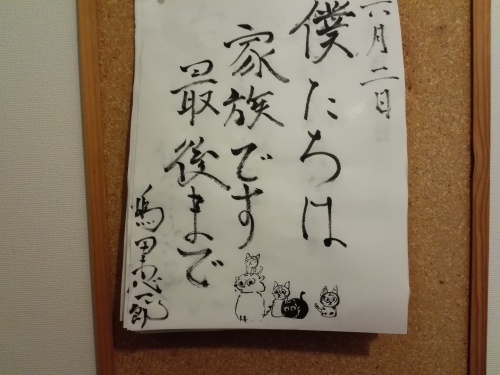 六月二日
僕たちは
家族です
最後まで
鳴田忠一郎